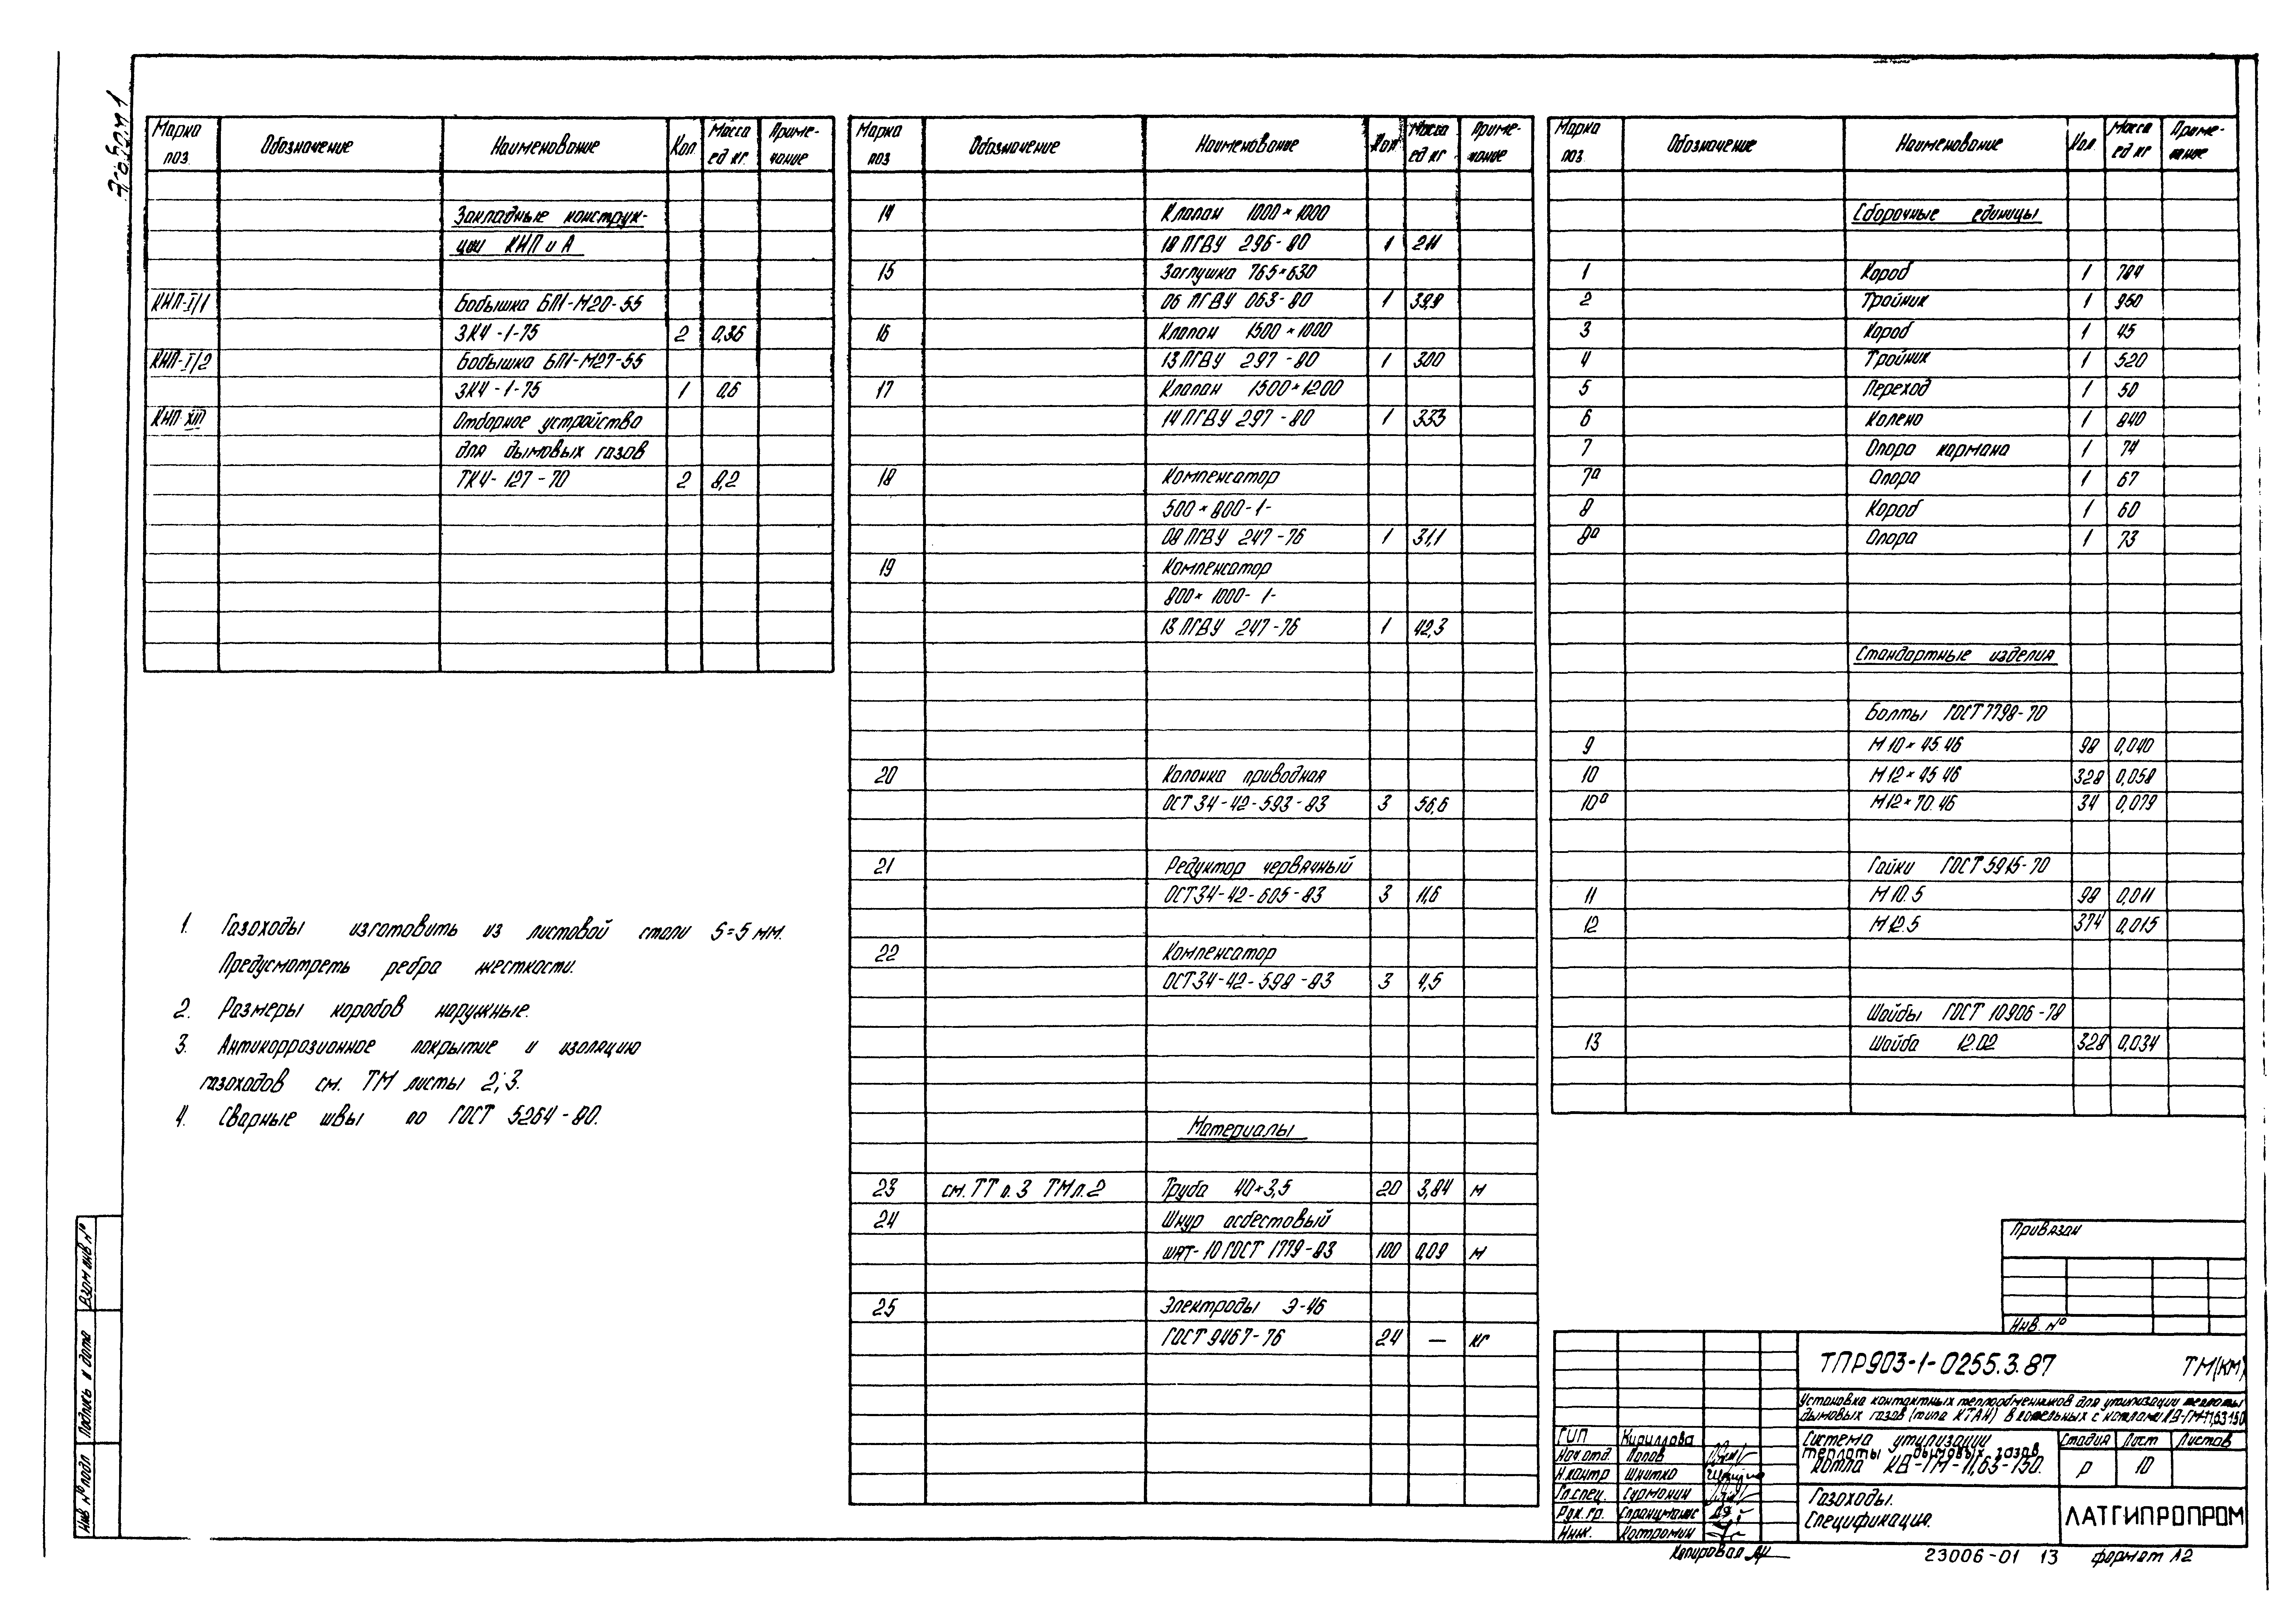 Альбом 1
Марка поз. Обозначение Наименование Кол Масса ед кг. Приме-чание
Закладные конструк-
ции КИП и А
КИП-I/1 Бобышка БП1-М20-55
ЗК4-1-75 2 0,36
КИП-I/2 Бобышка БП1-М27-55
ЗК4-1-75 1 0,6
КИП XIII Отборное устройство
для дымовых газов
ТК4-127-70 2 8,2
1. Газоходы изготовить из листовой стали S=5 мм.
Предусмотреть ребра жесткости.
2. Размеры коробов наружные.
3. Антикоррозионное покрытие и изоляцию
газоходов см. ТМ листы 2; 3.
4. Сварные швы по ГОСТ 5264-80.
Марка поз Обозначение Наименование Кол Масса ед кг Приме-чание
14 Клапан 1000×1000
18 ПГВУ 296-80 1 211
15 Заглушка 765×630
06 ПГВУ 063-80 1 39,8
16 Клапан 1500×1000
13 ПГВУ 297-80 1 300
17 Клапан 1500×1200
14 ПГВУ 297-80 1 333
18 Компенсатор
500×800-1-
08 ПГВУ 247-76 1 31,1
19 Компенсатор
800×1000-1-
13 ПГВУ 247-76 1 42,3
20 Колонка приводная
ОСТ 34-42-593-83 3 56,6
21 Редуктор червячный
ОСТ 34-42-605-83 3 11,6
22 Компенсатор
ОСТ 34-42-598-83 3 4,5
Материалы
23 см. ТТ п. 3 ТМ л. 2 Труба 40×3,5 20 3,84 м
24 Шнур асбестовый
ШАТ-10 ГОСТ 1779-83 100 0,09 м
25 Электроды Э-46
ГОСТ 9467-76 24 — кг
Марка поз. Обозначение Наименование Кол Масса ед кг Приме-чание
Сборочные единицы
1 Короб 1 784
2 Тройник 1 960
3 Короб 1 45
4 Тройник 1 520
5 Переход 1 50
6 Колено 1 840
7 Опора кармана 1 74
7а Опора 1 67
8 Короб 1 60
8а Опора 1 73
Стандартные изделия
Болты ГОСТ 7798-70
9 М 10×45.46 98 0,040
10 М 12×45.46 328 0,058
10а М12×70.46 34 0,079
Гайки ГОСТ 5915-70
11 М 10.5 98 0,011
12 М12.5 374 0,015
Шайбы ГОСТ 10906-78
13 Шайба 12.02 328 0,034
Привязан
Инв. №
ТПР903-1-0255.3.87 ТМ(КМ)
Установка контактных теплообменников для утилизации теплоты
дымовых газов (типа КТАН) в котельных с котлами КВ-ГМ-11,63-150
ГИП Кириллова
Нач.отд. Попов
Н.контр Шнитко
Гл.спец. Сурмонин
Рук. гр. Спранцманис
Инж. Костромин
Система утилизации
теплоты дымовых газов
котла КВ-ГМ-11,63-150.
Стадия Лист Листов
Р 10
Газоходы.
Спецификация.
ЛАТГИПРОПРОМ
Копировал
23006-01 13 формат А2
Взам инв. №
Подпись и дата
Инв № подл